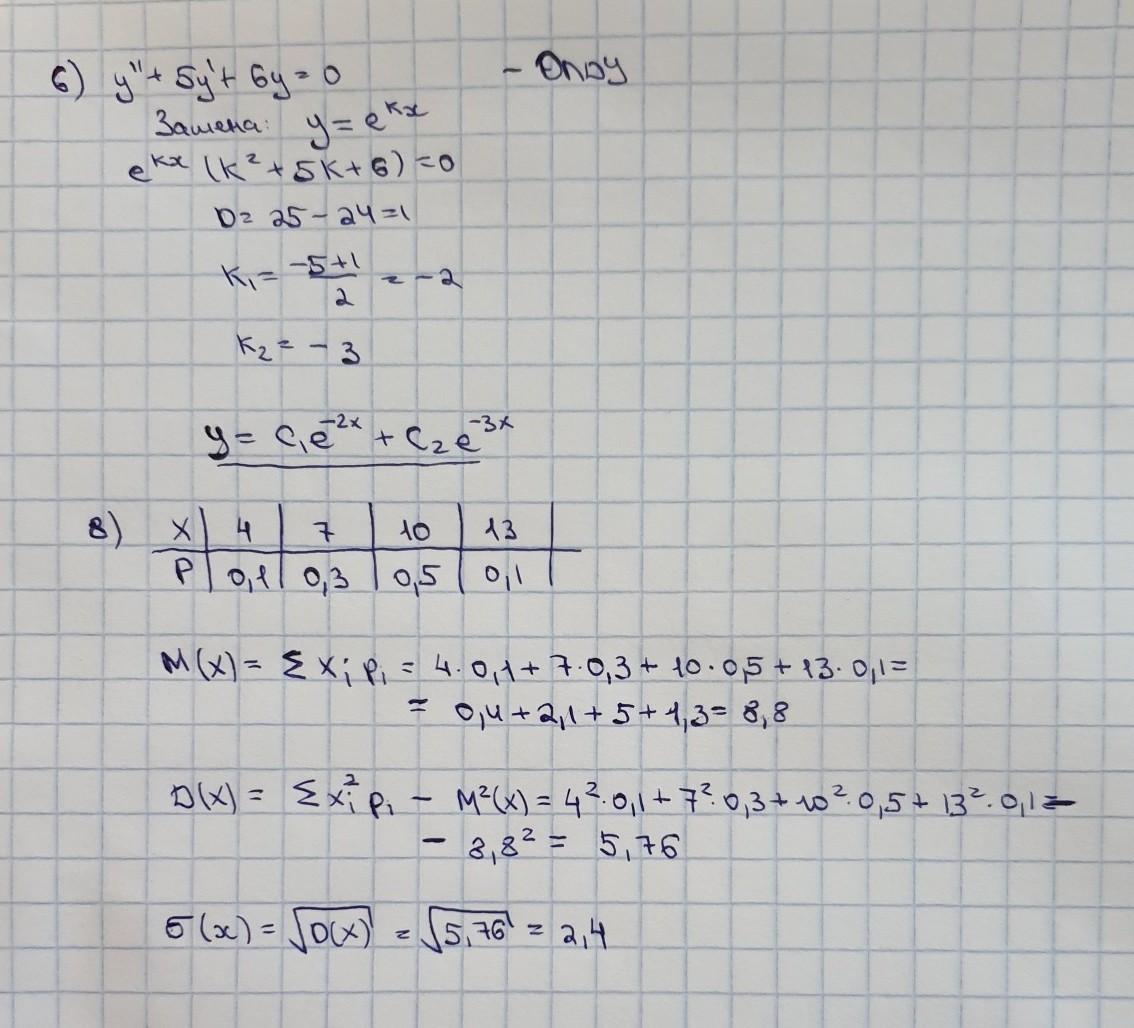 6) y'' + 5y' + 6y = 0 - ОЛДУ
Замена: y = e^{kx}
e^{kx} (k² + 5k + 6) = 0
D = 25 - 24 = 1
k₁ = \frac{-5+1}{2} = -2
k₂ = -3
y = C₁e^{-2x} + C₂e^{-3x}
8) X | 4 | 7 | 10 | 13
P | 0,1 | 0,3 | 0,5 | 0,1
M(X) = Σ xᵢ pᵢ = 4·0,1 + 7·0,3 + 10·0,5 + 13·0,1 =
= 0,4 + 2,1 + 5 + 1,3 = 8,8
D(X) = Σ xᵢ² pᵢ - M²(X) = 4²·0,1 + 7²·0,3 + 10²·0,5 + 13²·0,1 -
- 8,8² = 5,76
σ(x) = √D(X) = √5,76 = 2,4